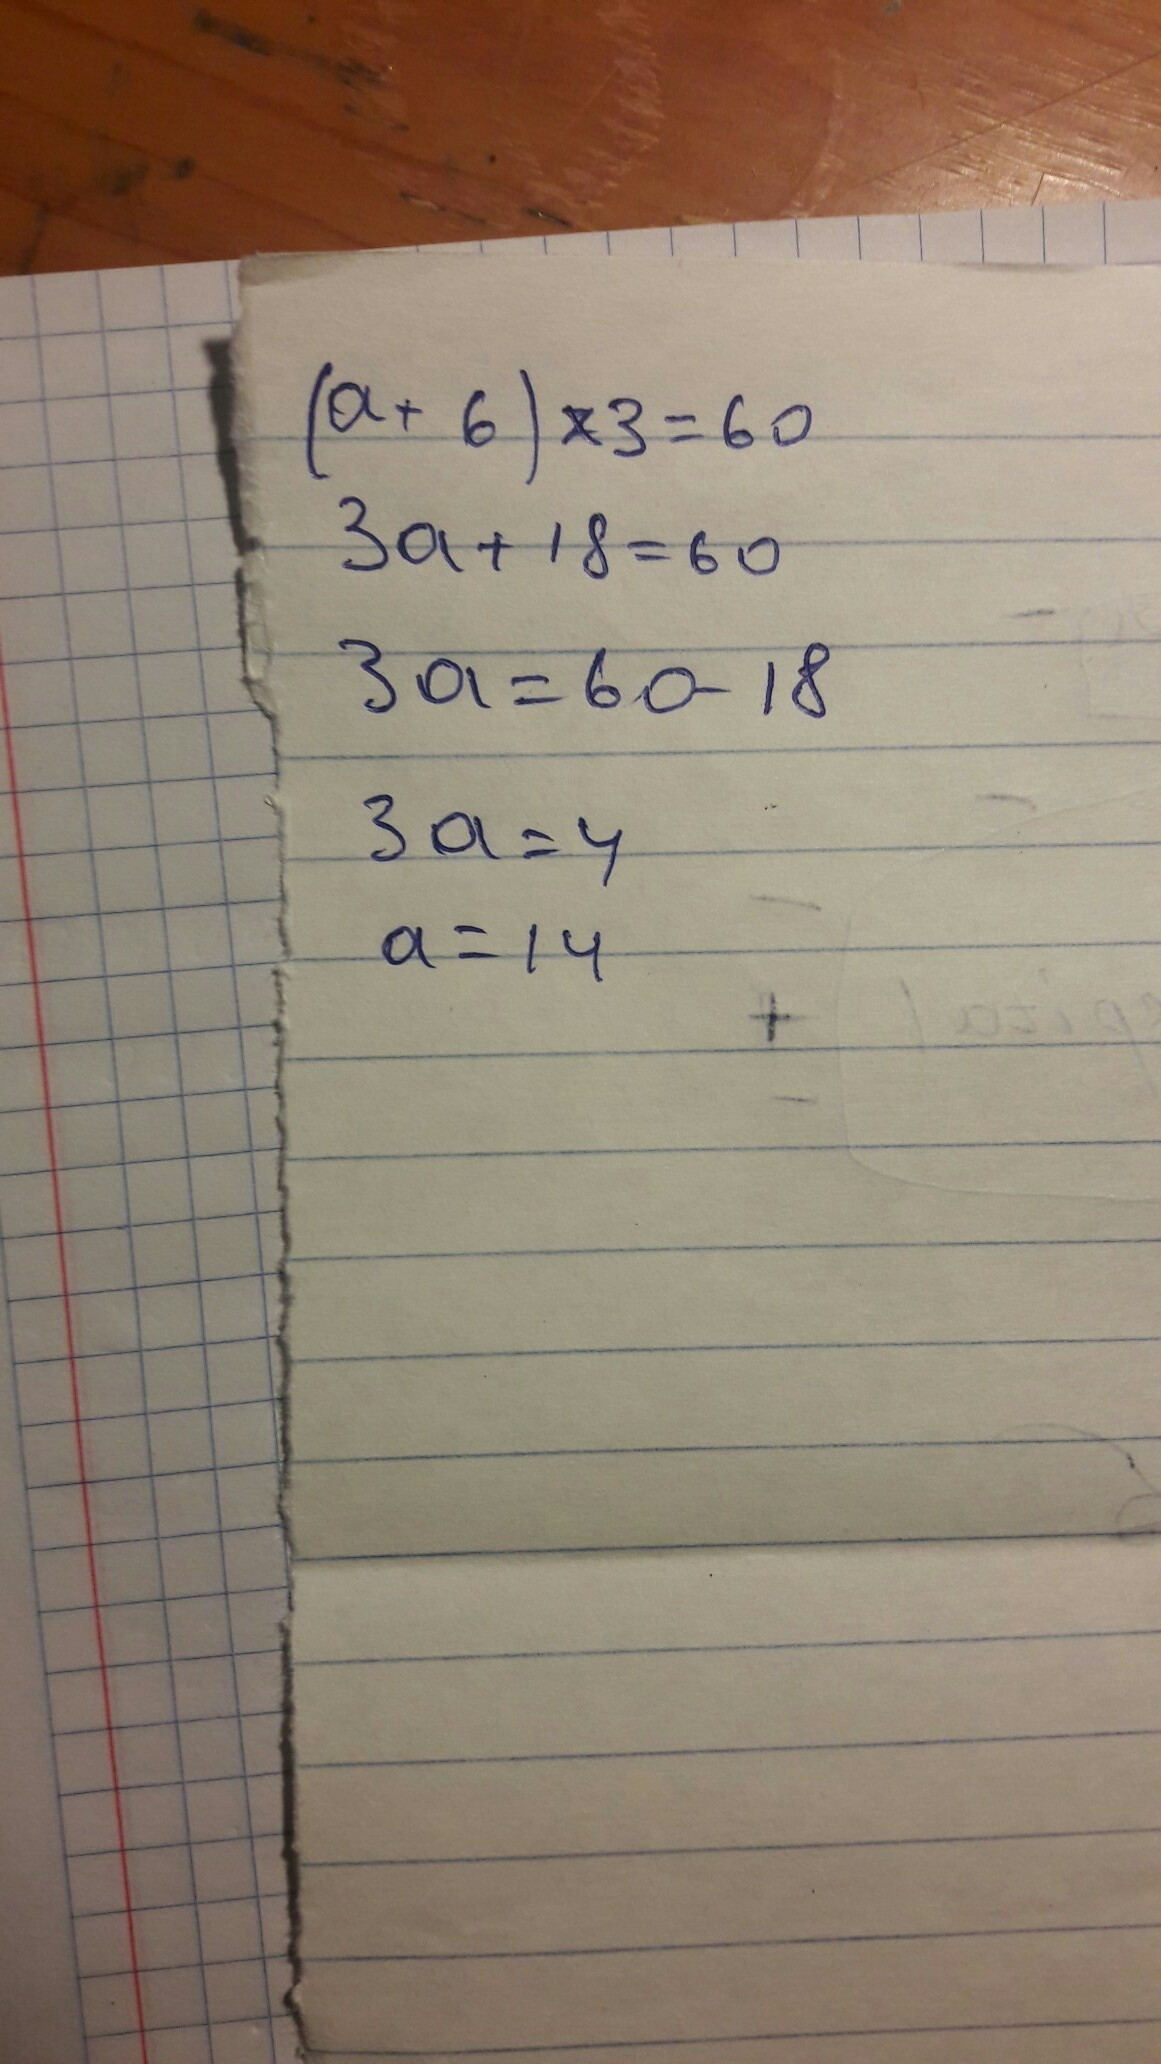 (a+ 6) x3=60
3a+18=60
3a=60-18
3a=4
a=14
+
-